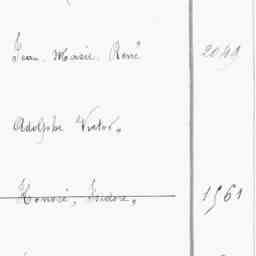 Jean Marie René 2049
Adolphe Victor,
Honoré, Isidore, 1961